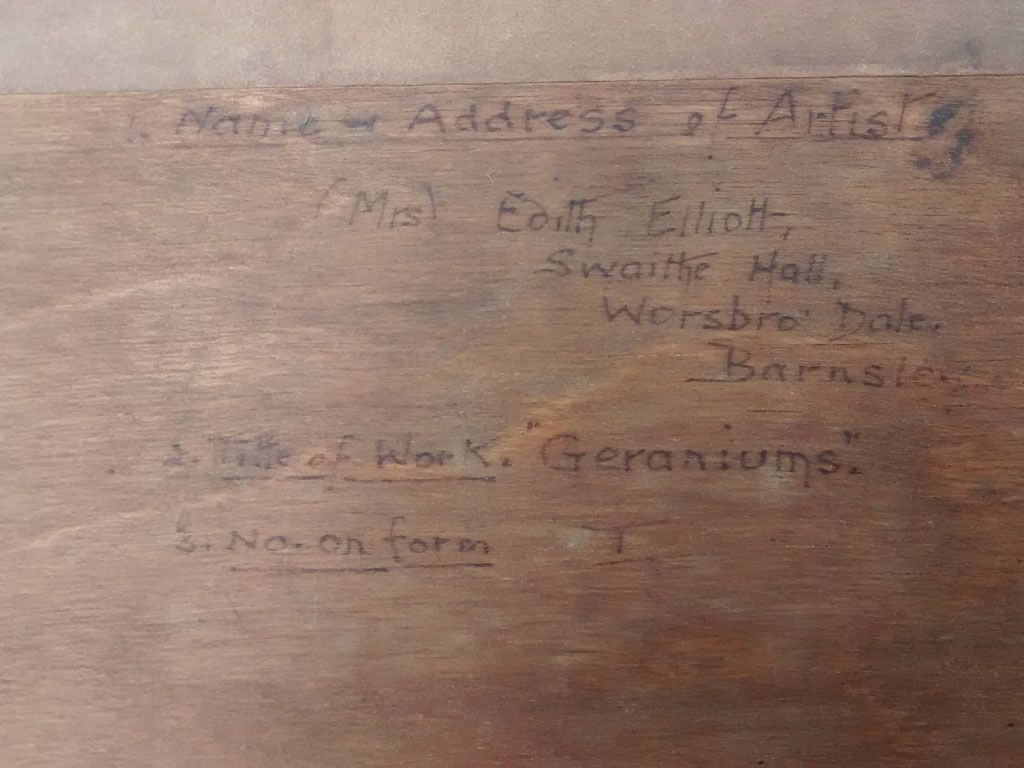 1. Name & Address of Artist
(Mrs) Edith Elliott,
Swaithe Hall,
Worsbro' Dale.
Barnsley
2. Title of Work. "Geraniums."
3. No. on form